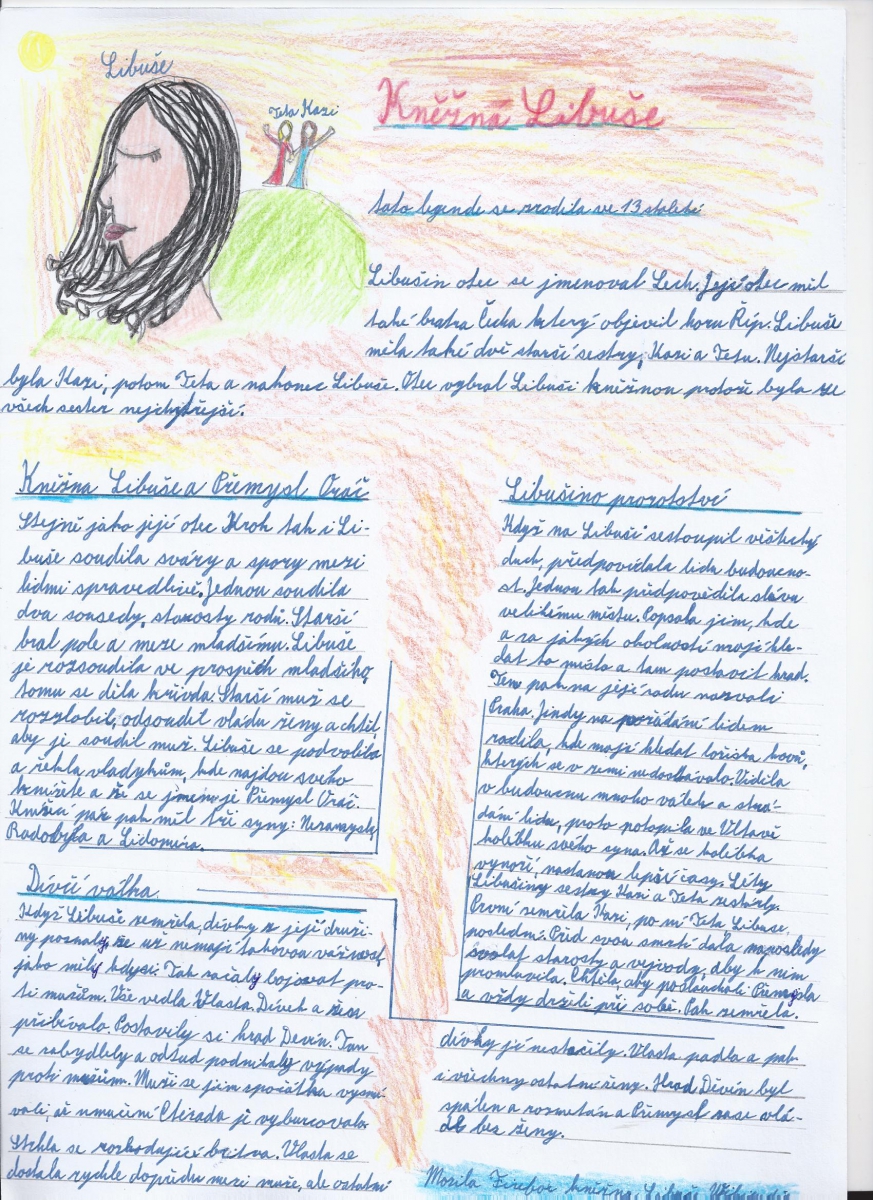 Libuše
Teta Kazi
Kněžna Libuše
tato legenda se zrodila ve 13 století
Libušin otec se jmenoval Lech. Její otec měl
také bratra Čecha který objevil horu Říp. Libuše
měla také dvě starší sestry, Kazi a Tetu. Nejstarší
byla Kazi, potom Teta a nakonec Libuše. Otec vybral Libuši kněžnou protože byla ze
všech sester nejchytřejší.
Kněžna Libuše a Přemysl Oráč
Stejně jako její otec Krok tak i Li-
buše soudila sváry a spory mezi
lidmi spravedlivě. Jednou soudila
dva sousedy, starosty rodů. Starší
bral pole a meze mladšímu. Libuše
je rozsoudila ve prospěch mladšího,
tomu se děla křivda. Starší muž se
rozzlobil, odsoudil vládu ženy a chtěl
aby je soudil muž. Libuše se podvolila
a řekla vladykům, kde najdou svého
knížete a že se jmenuje Přemysl Oráč.
Knížecí pár pak měl tři syny: Nezamysla,
Radobýla a Lidomíra.
Libušino proroctví
Když na Libuši sestoupil věštecký
duch, předpovídala lidu budoucno-
st. Jednou tak předpověděla slávu
velikému městu. Popsala jim, kde
a za jakých okolností mají hle-
dat to místo a tam postavit hrad.
Ten pak na její radu nazvali
Praha. Jindy na požádání lidem
radila, kde mají hledat ložiska kovů,
kterých se v zemi nedostávalo. Viděla
v budoucnu mnoho válek a strá-
dání lidu, proto potopila ve Vltavě
kolébku svého syna. Až se kolébka
vynoří, nastanou lepší časy. Léty
Libušiny sestry Kazi a Teta zestárly.
První zemřela Kazi, po ní Teta, Libuše
poslední. Před svou smrtí dala naposledy
svolat starosty a vojvody, aby k nim
promluvila. Chtěla, aby poslouchali Přemysla
a vždy drželi při sobě. Pak zemřela.
Dívčí válka
Když Libuše zemřela, dívky z její druži-
ny poznaly, že už nemají takovou vážnost
jako měly kdysi. Tak začaly bojovat pro-
ti mužům. Vše vedla Vlasta. Dívek a žen
přibývalo. Postavily si hrad Děvín. Tam
se zabydlely a odtud podnikaly výpady
proti mužům. Muži se jim zpočátku vysmí-
vali, až umučení Ctirada je vyburcovalo.
Strhla se rozhodující bitva. Vlasta se
dostala rychle dopředu mezi muže, ale ostatní
dívky jí nestačily. Vlasta padla a pak
i všechny ostatní ženy. Hrad Děvín byl
spálen a rozmetán a Přemysl zase vlá-
dl bez ženy.
kněžna Libuše